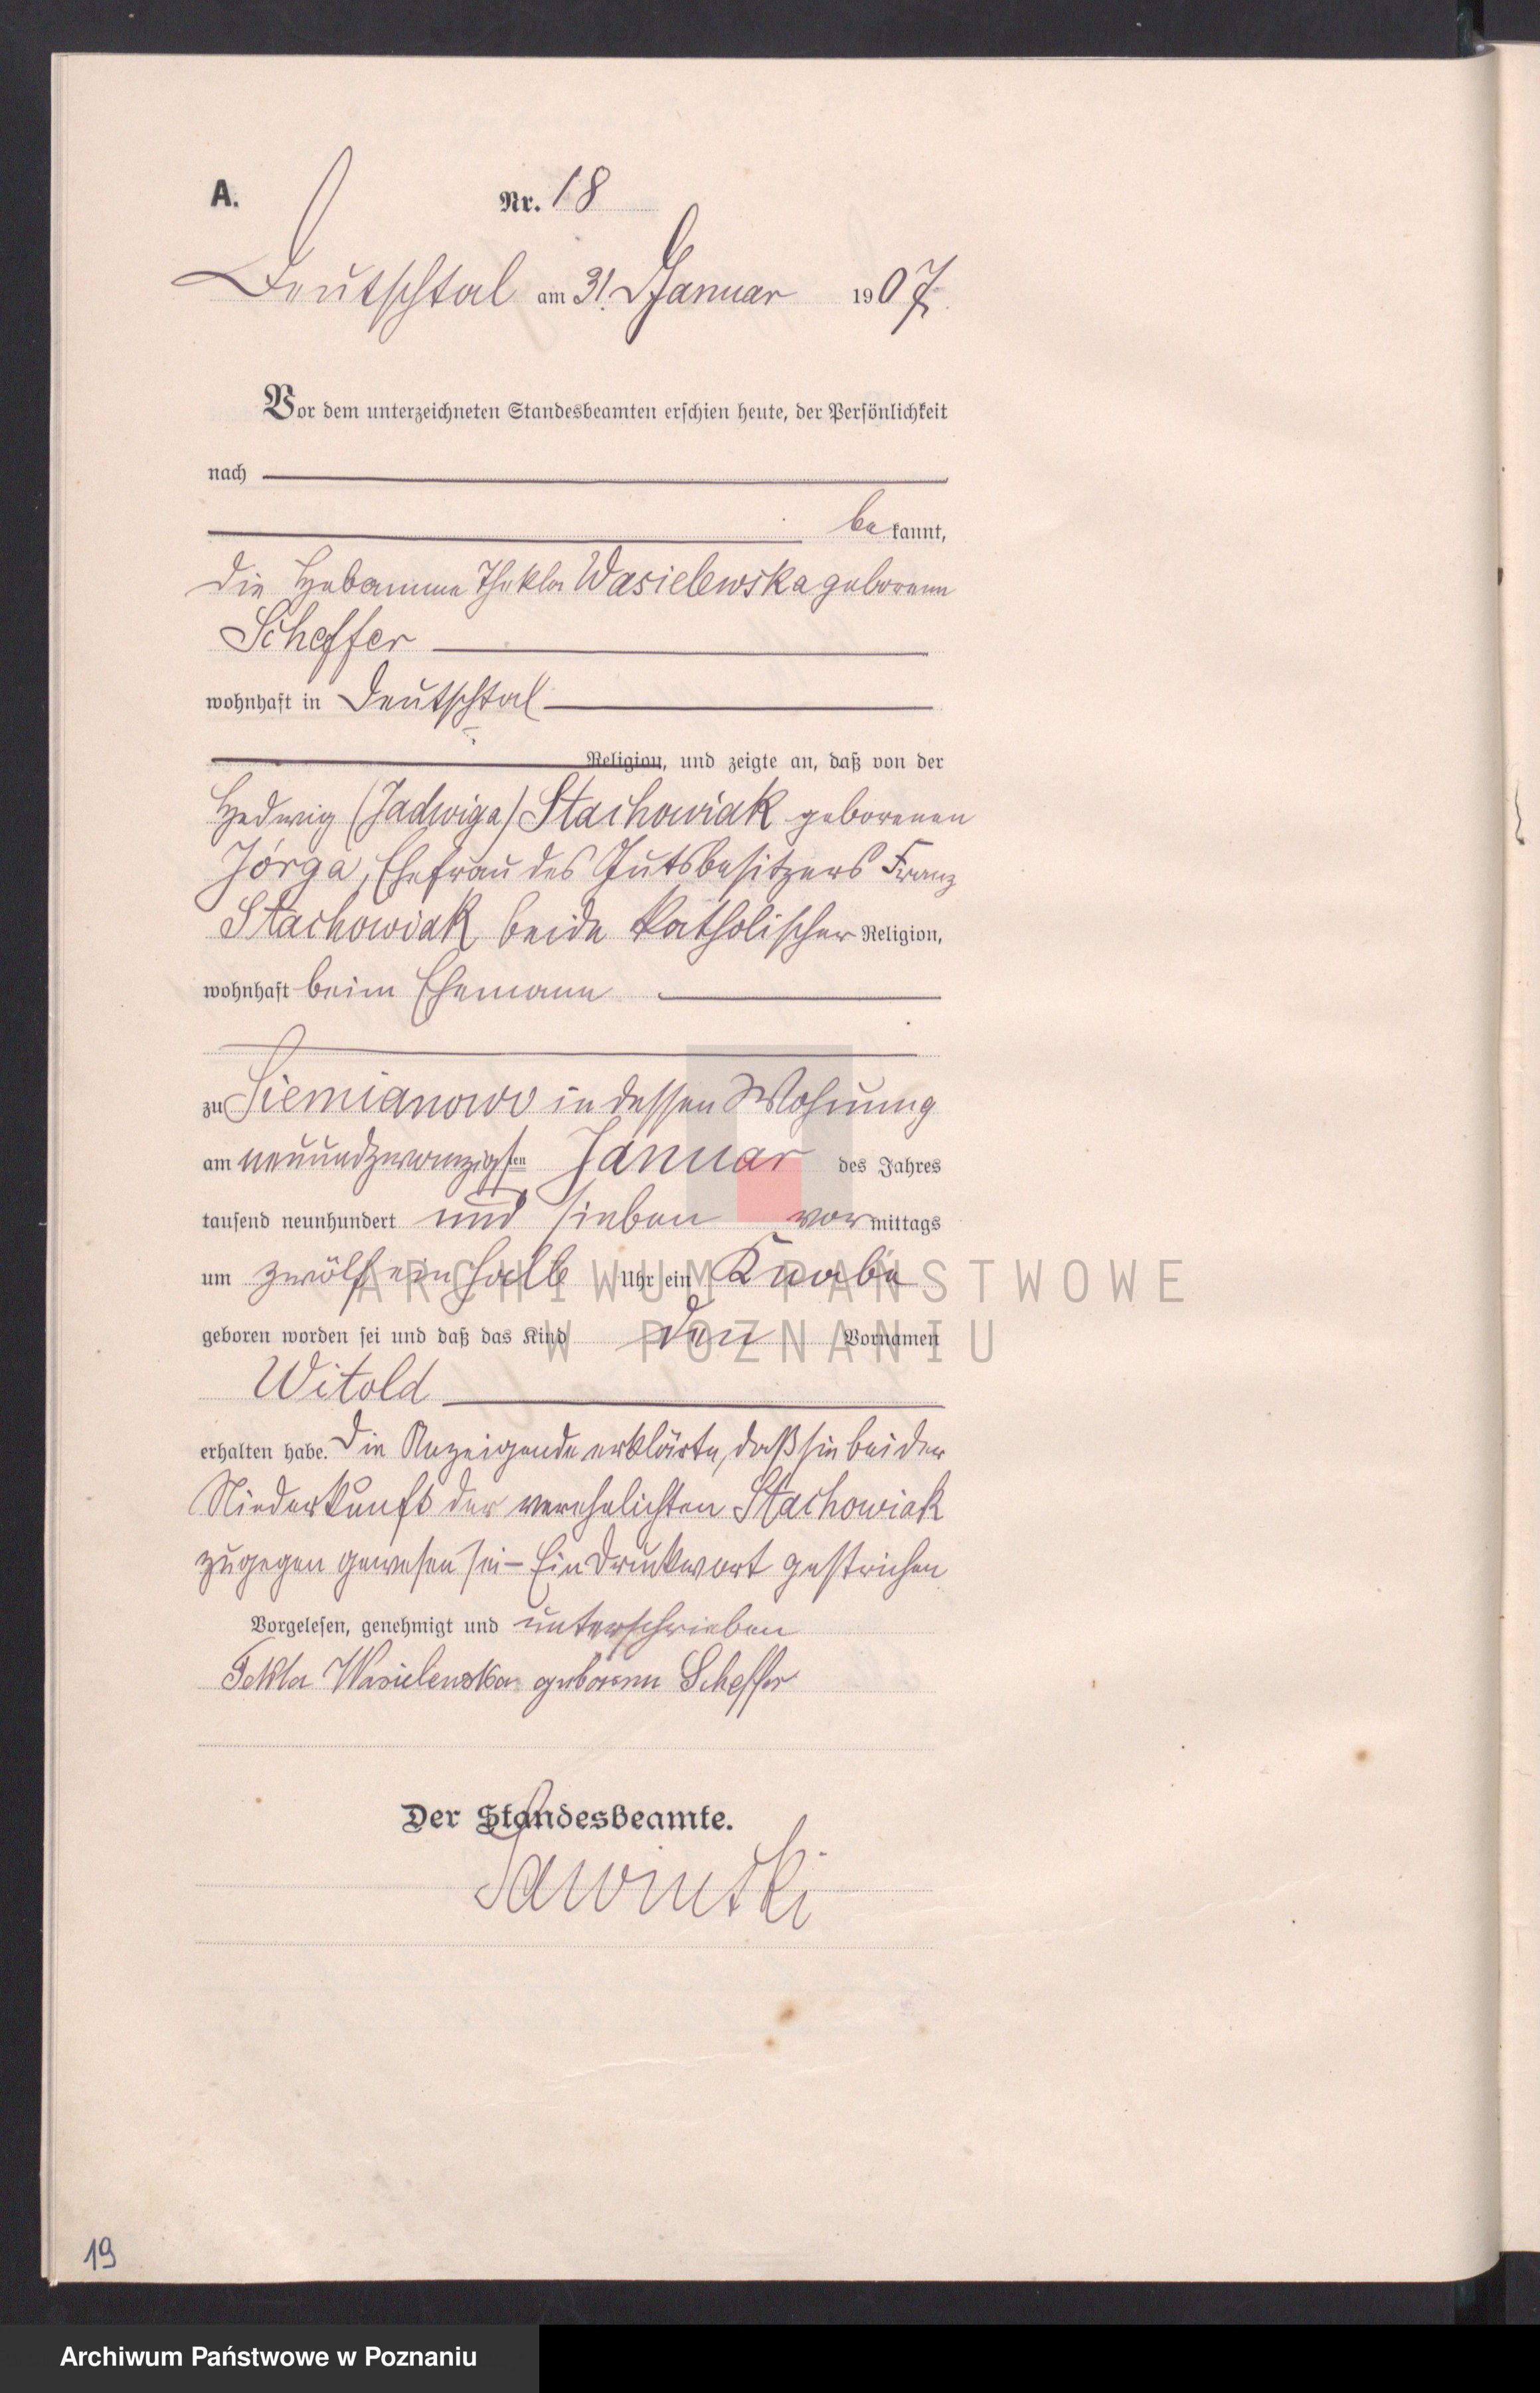 A.
Nr. 18
Deutschtal am 31. Januar 1907
Vor dem unterzeichneten Standesbeamten erschien heute, der Persönlichkeit
nach
be kannt,
die Hebamme Thekla Wasielewska geborene
Scheffer
wohnhaft in Deutschtal
Religion, und zeigte an, daß von der
Hedwig (Jadwiga) Stachowiak geborenen
Jórga, Ehefrau des Gutsbesitzers Franz
Stachowiak, beide katholischer Religion,
wohnhaft beim Ehemann
zu Siemianowo in dessen Wohnung
am neunundzwanzigsten Januar des Jahres
tausend neunhundert und sieben vormittags
um zwölf ein halb Uhr ein Knabe
geboren worden sei und daß das Kind den Vornamen
Witold
erhalten habe. Die Anzeigende erklärte, daß sie bei der
Niederkunft der verehelichten Stachowiak
zugegen gewesen sei – Ein Druckwort gestrichen
Vorgelesen, genehmigt und unterschrieben
Tekla Wasielewska geborene Scheffer
Der Standesbeamte.
ARCHIWUM PAŃSTWOWE
W POZNANIU
19
Archiwum Państwowe w Poznaniu